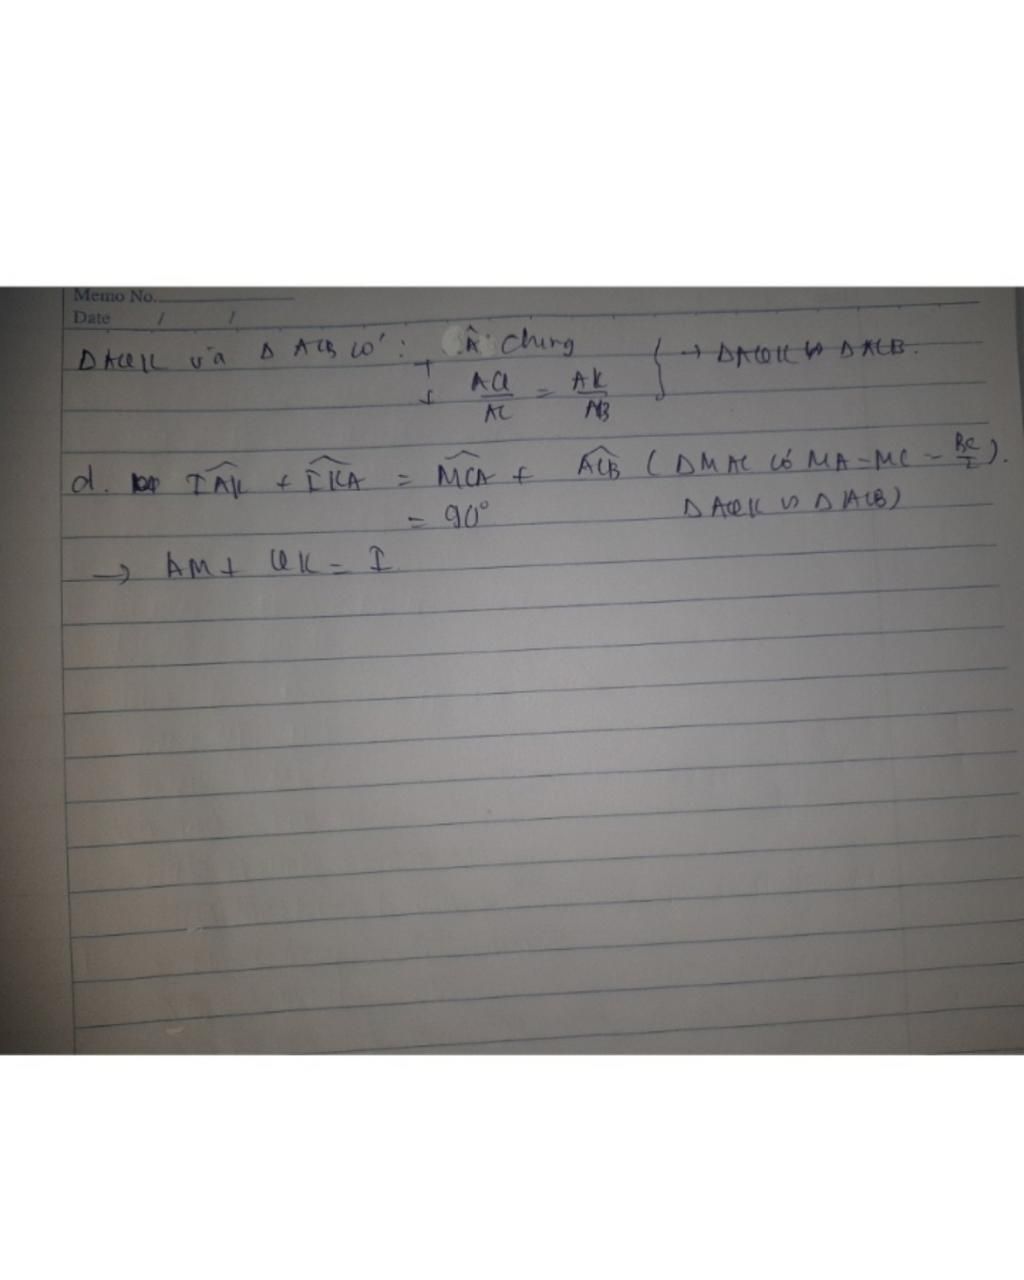 Memo No.
Date / /
ΔAQK và ΔACB có: + Â chung } → ΔAQK ∽ ΔACB.
+ AQ/AC = AK/AB
d. IAK + IKA = MCA + ACB (ΔMAC có MA = MC = BC/2).
= 90° ΔAQK ∽ ΔACB)
→ AM ⊥ QK = I